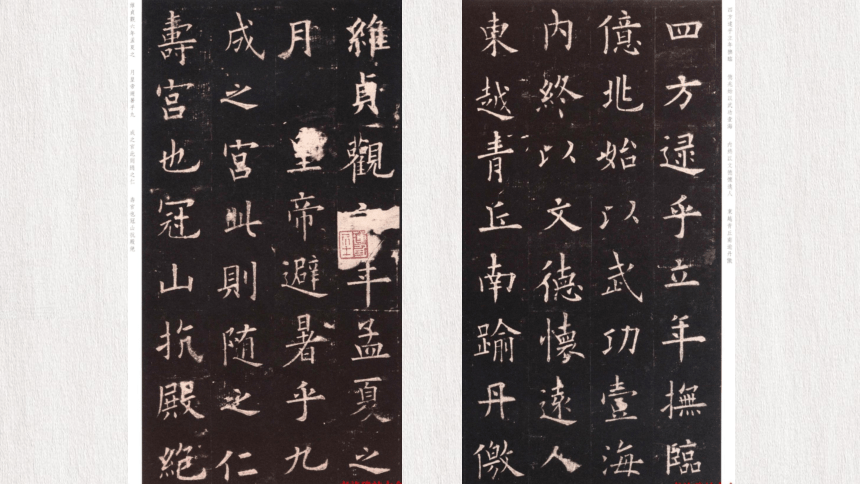 維貞觀年孟夏之
月皇帝避暑乎九
成之宮此則随之仁
壽宮也冠山抗殿絕
四方逮乎立年撫臨
億兆始以武功壹海
內終以文德懷遠人
東越青丘南踰丹徼